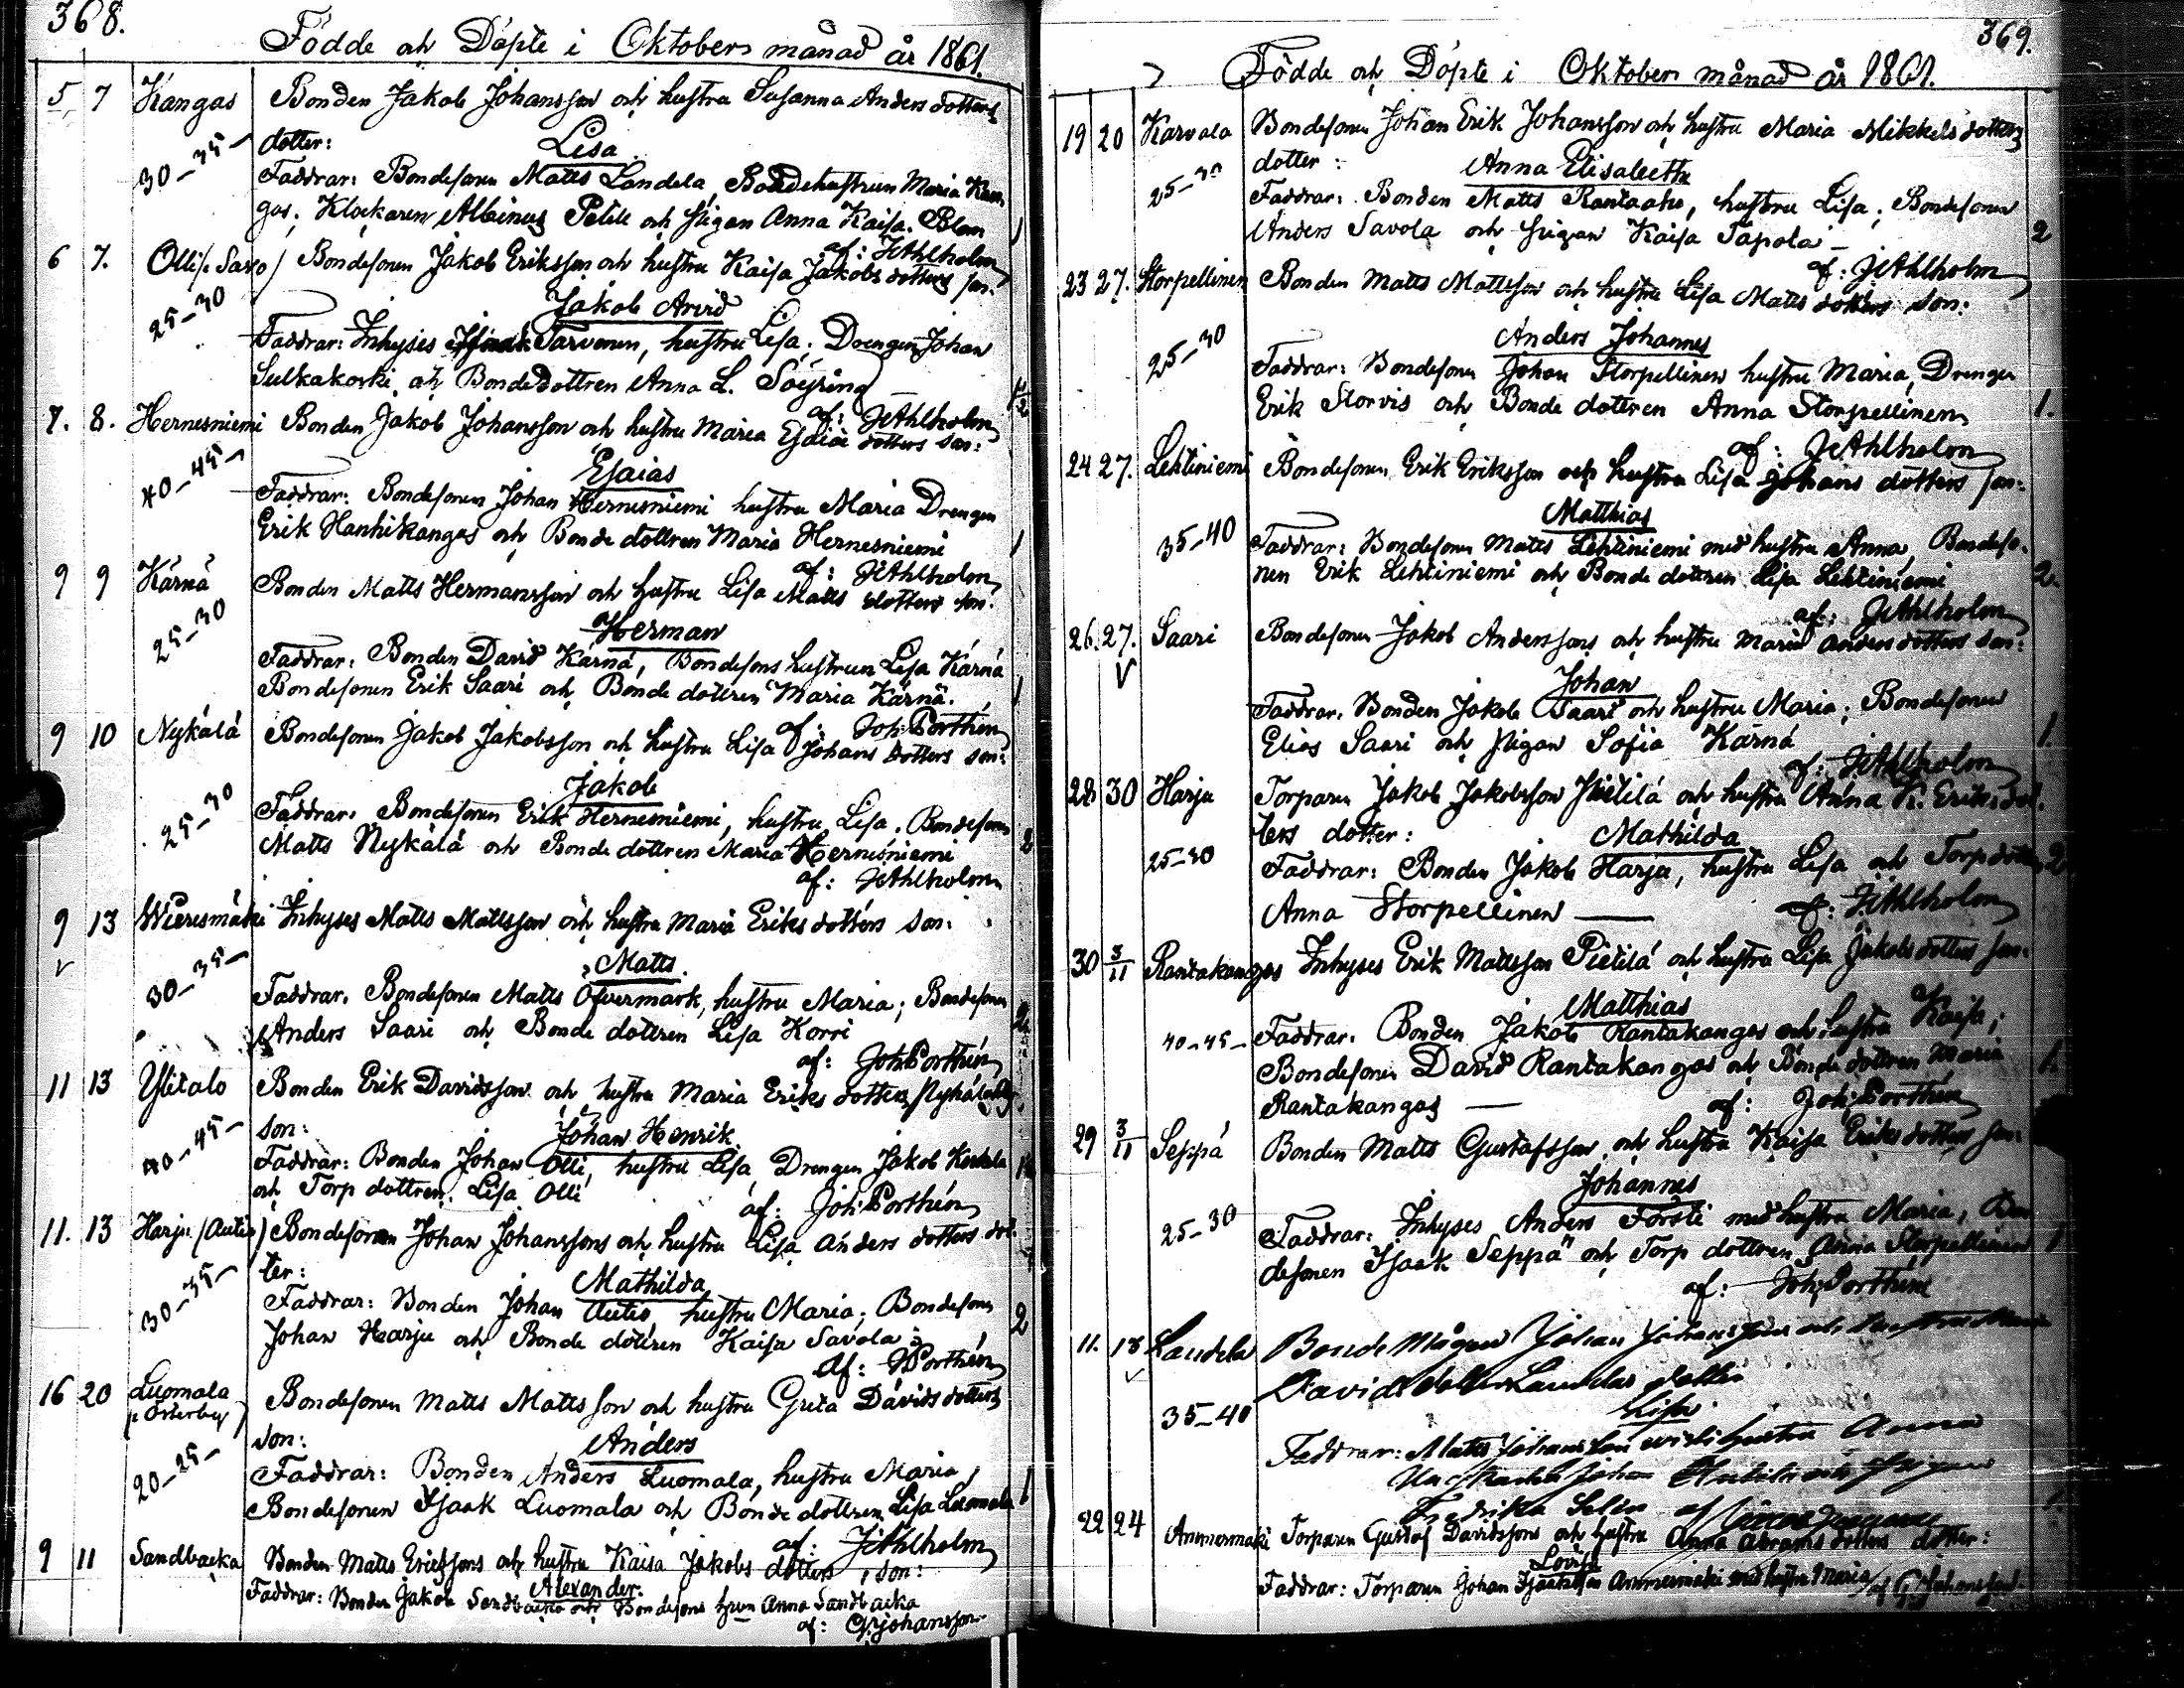 368.
Födde och Döpte i Oktober månad år 1861.
5 7 Kangas Bonden Jakob Johansson och hustru Susanna Anders dotters
dotter: Lisa
30-35 Faddrar: Bondesonen Matts Landela, Bondehustrun Maria Kan
gas; Klockaren Albinus Petell och pigan Anna Kaisa
af: JEAhlholm
6 7. Olli (: Savo) Bondesonen Jakob Eriksson och hustru Kaisa Jakobs dotters son:
25-30 Jakob Arvid
Faddrar: Inhyses Tarvonen, hustru Lisa; Drengen Johan
Sulkakoski och Bondedottren Anna L. Söyring
af: JEAhlholm
7. 8. Hernesniemi Bonden Jakob Johansson och hustru Maria Esaiæ dotters son:
40-45 Esaias
Faddrar: Bondesonen Johan Hernesniemi hustru Maria Drengen
Erik Hanhikangas och Bonde dottren Maria Hernesniemi 1
af: JEAhlholm
9 9 Kärnä Bonden Matts Hermansson och hustru Lisa Matts dotters son:
25-30 Herman
Faddrar: Bonden David Kärnä, Bondesons hustrun Lisa Kärnä
Bondesonen Erik Saari och Bonde dottren Maria Kärnä. 1
af: Joh: Porthén
9 10 Nykälä Bondesonen Jakob Jakobsson och hustru Lisa Johans dotters son:
Jakob
25-30 Faddrar: Bondesonen Erik Hernesniemi, hustru Lisa. Bondesonen
Matts Nykälä och Bonde dottren Maria Hernesniemi 2
af: JEAhlholm
9 13 Wieresmäki Inhyses Matts Mattsson och hustru Maria Eriks dotters son:
Matts
30-35 Faddrar: Bondesonen Matts Öfvermark, hustru Maria; Bondesonen
Anders Saari och Bonde dottren Lisa Korri 2
af: Joh: Porthén
11 13 Ylitalo Bonden Erik Davidsson och hustru Maria Eriks dotters
son: Johan Henrik
40-45 Faddrar: Bonden Johan Olli, hustru Lisa, Drengen Jakob
och Torp dottren Lisa Olli
af: Joh: Porthén
11. 13 Harju (Autio) Bondesonen Johan Johanssons och hustru Lisa Anders dotters dot
ter: Mathilda
30-35 Faddrar: Bonden Johan Autio, hustru Maria; Bondesonen
Johan Harju och Bonde dottren Kaisa Savola 2
af: JPorthén
16 20 Luomala Bondesonen Matts Mattsson och hustru Greta Davids dotters
(: Österby)
son: Anders
20-25 Faddrar: Bonden Anders Luomala, hustru Maria,
Bondesonen Isaak Luomala och Bonde dottren Lisa Luomala 1
af: JEAhlholm
9 11 Sandbacka Bonden Matts Erikssons och hustru Kaisa Jakobs dotters son:
Alexander.
Faddrar: Bonden Jakob Sandbacka och Bondesons hrun Anna Sandbacka
af: G. Johansson
369.
Födde och Döpte i Oktober månad år 1861.
19 20 Karvala Bondesonen Johan Erik Johansson och hustru Maria Mikkels dotters
dotter: Anna Elisabeth
25-30 Faddrar: Bonden Matts Rantaaho, hustru Lisa; Bondesonen
Anders Savola och pigan Kaisa Tapola 2
af: JEAhlholm
23 27. Storpellinen Bonden Matts Mattsson och hustru Lisa Matts dotters son:
Anders Johannes
25-30 Faddrar: Bondesonen Johan Storpellinen hustru Maria, Drengen
Erik Storvis och Bonde dottren Anna Storpellinen 1.
af: JEAhlholm
24 27. Lehtiniemi Bondesonen Erik Eriksson och hustru Lisa Johans dotters son:
Matthias
35-40 Faddrar: Bondesonen Matts Lehtiniemi med hustru Anna, Bondeso-
nen Erik Lehtiniemi och Bonde dottren Lisa Lehtiniemi 2.
af: JEAhlholm
26. 27. Saari Bondesonen Jakob Anderssons och hustru Maria Anders dotters son:
Johan
Faddrar: Bonden Jakob Saari och hustru Maria; Bondesonen
Elias Saari och pigan Sofia Kärnä 1.
af: JEAhlholm
28 30 Harju Torparen Jakob Jakobsson Pietilä och hustru Anna K. Eriks dot
ters dotter: Mathilda
25-30 Faddrar: Bonden Jakob Harju, hustru Lisa och Torpdottren 2
Anna Storpellinen af: JEAhlholm
30 3/11 Rantakangas Inhyses Erik Mattsson Pietilä och hustru Lisa Jakobs dotters son:
Matthias
40-45 Faddrar: Bonden Jakob Rantakangas och hustru Kaisa;
Bondesonen David Rantakangas och Bonde dottren Maria 1.
Rantakangas af: Joh: Porthén
29 3/11 Seppä Bonden Matts Gustafsson och hustru Kaisa Eriks dotters son:
Johannes
25-30 Faddrar: Inhyses Anders Försti med hustru Maria, Bon
desonen Isaak Seppä och Torp dottren Anna Storpellinen 1
af: Joh: Porthén
11. 13 Landela Bonde Mågen Johan Johansson och hustru Maria
Davids dotter Landelas dotter
35-40 Lisa
Faddrar: Matts Johansson och hustru Anna
Johan och pigan
Fredrika af
22 24 Ammesmäki Torparen Gustaf Davidssons och hustru Anna Abrams dotters dotter:
Lovisa
Faddrar: Torparen Johan Isaksson Ammesmäki med hustru Maria af G. Johansson